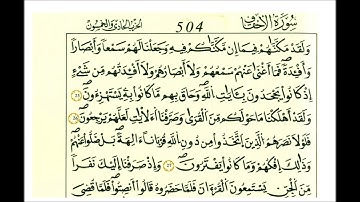 سُورَةُ الْأَحْقَافِ 504 الحزب الحادي والخمسون
وَلَقَدْ مَكَّنَّاهُمْ فِيمَا إِن مَّكَّنَّاكُمْ فِيهِ وَجَعَلْنَا لَهُمْ سَمْعاً وَأَبْصَاراً
وَأَفْئِدَةً فَمَا أَغْنَىٰ عَنْهُمْ سَمْعُهُمْ وَلَا أَبْصَارُهُمْ وَلَا أَفْئِدَتُهُم مِّن شَيْءٍ
إِذْ كَانُوا يَجْحَدُونَ بِـَٔايَاتِ اللَّهِ وَحَاقَ بِهِم مَّا كَانُوا بِهِ يَسْتَهْزِءُونَ
وَلَقَدْ أَهْلَكْنَا مَا حَوْلَكُم مِّنَ الْقُرَىٰ وَصَرَّفْنَا الْآيَاتِ لَعَلَّهُمْ يَرْجِعُونَ
فَلَوْلَا نَصَرَهُمُ الَّذِينَ اتَّخَذُوا مِن دُونِ اللَّهِ قُرْبَاناً آلِهَةً بَلْ ضَلُّوا عَنْهُمْ
وَذَٰلِكَ إِفْكُهُمْ وَمَا كَانُوا يَفْتَرُونَ وَإِذْ صَرَفْنَا إِلَيْكَ نَفَراً
مِّنَ الْجِنِّ يَسْتَمِعُونَ الْقُرْءَانَ فَلَمَّا حَضَرُوهُ قَالُوا أَنصِتُوا فَلَمَّا قُضِيَ